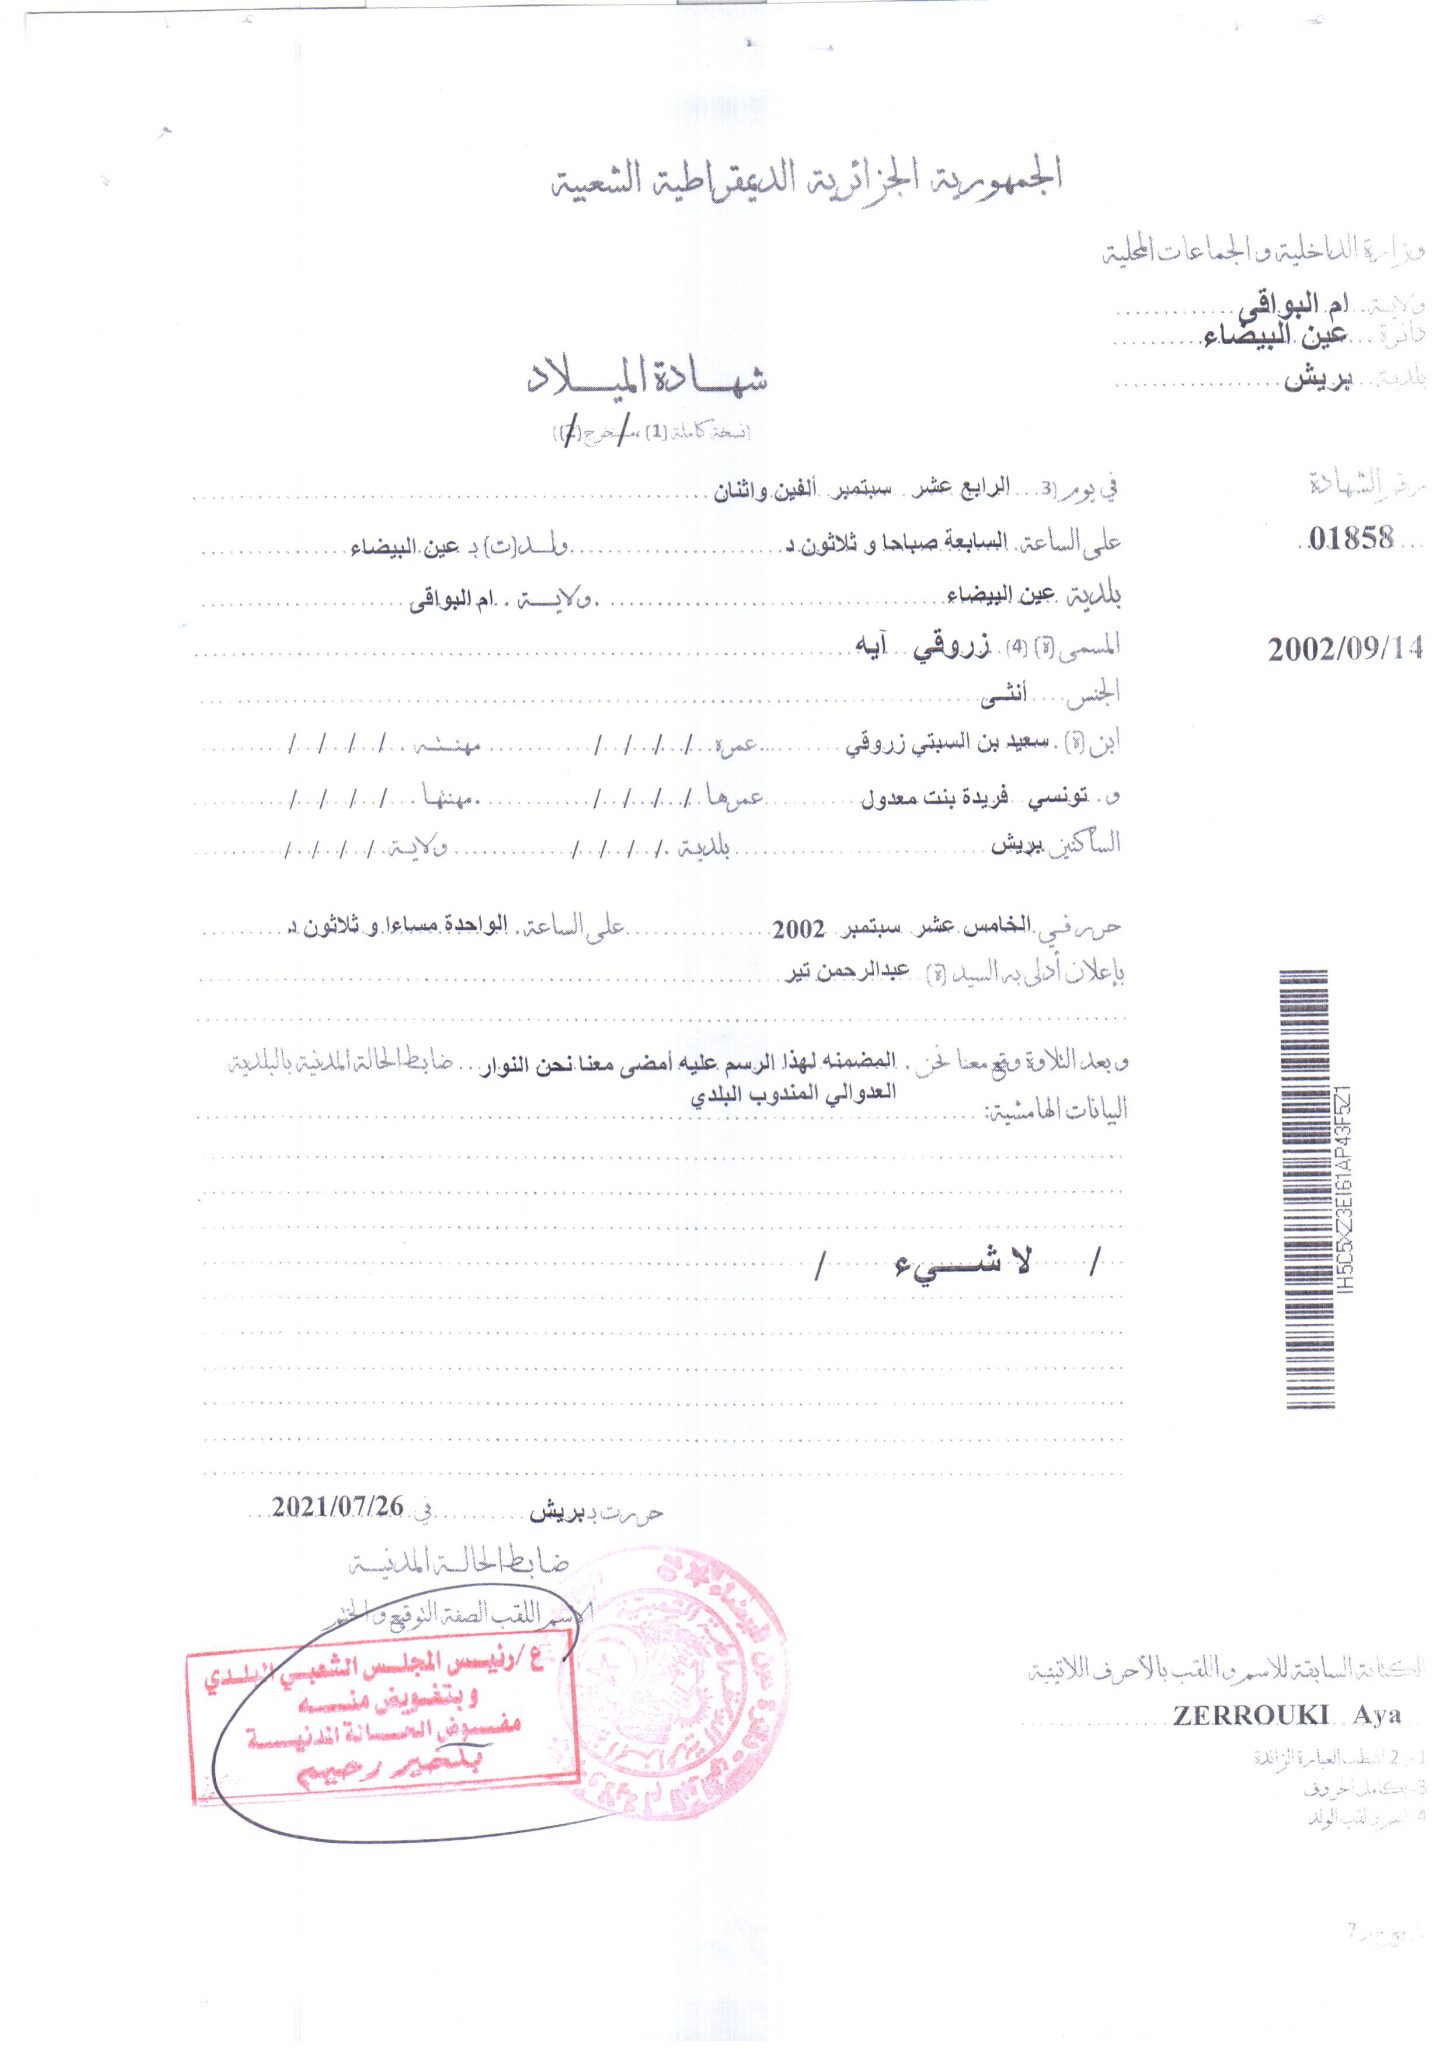 الجمهورية الجزائرية الديمقراطية الشعبية
وزارة الداخلية والجماعات المحلية
ولاية ام البواقي
دائرة عين البيضاء
بلدية بريش
شهادة الميلاد
(نسخة كاملة (1)، مستخرج (2))
رقم الشهادة
01858
2002/09/14
في يوم (3) الرابع عشر سبتمبر ألفين واثنان
على الساعة السابعة صباحا و ثلاثون د ولد(ت) بـ عين البيضاء
بلدية عين البيضاء ولاية ام البواقي
المسمى (ة) (4) زروقي آيه
الجنس أنثى
ابن (ة) سعيد بن السبتي زروقي عمره / / / / مهنته / / / /
و تونسي فريدة بنت معدول عمرها / / / / مهنتها / / / /
الساكنين بريش بلدية / / / / ولاية / / / /
حرر في الخامس عشر سبتمبر 2002 على الساعة الواحدة مساءا و ثلاثون د
بإعلان أدلى به السيد (ة) عبدالرحمن تير
و بعد التلاوة وقع معنا نحن المضمنه لهذا الرسم عليه أمضى معنا نحن النوار ضابط الحالة المدنية بالبلدية
العدوالي المندوب البلدي
البيانات الهامشية:
/ لا شيء /
1H5C5XZ3EI61AP43F5Z1
حررت بـ بريش في 2021/07/26
ضابط الحالة المدنية
الاسم اللقب الصفة التوقيع و الختم
ع/رئيس المجلس الشعبي البلدي
و بتفويض منه
مفوض الحالة المدنية
بلخير رحيم
الكتابة السابقة للاسم و اللقب بالأحرف اللاتينية
ZERROUKI Aya
1- 2 اشطب العبارة الزائدة
3- بكامل الحروف
4- اسم و لقب الولد